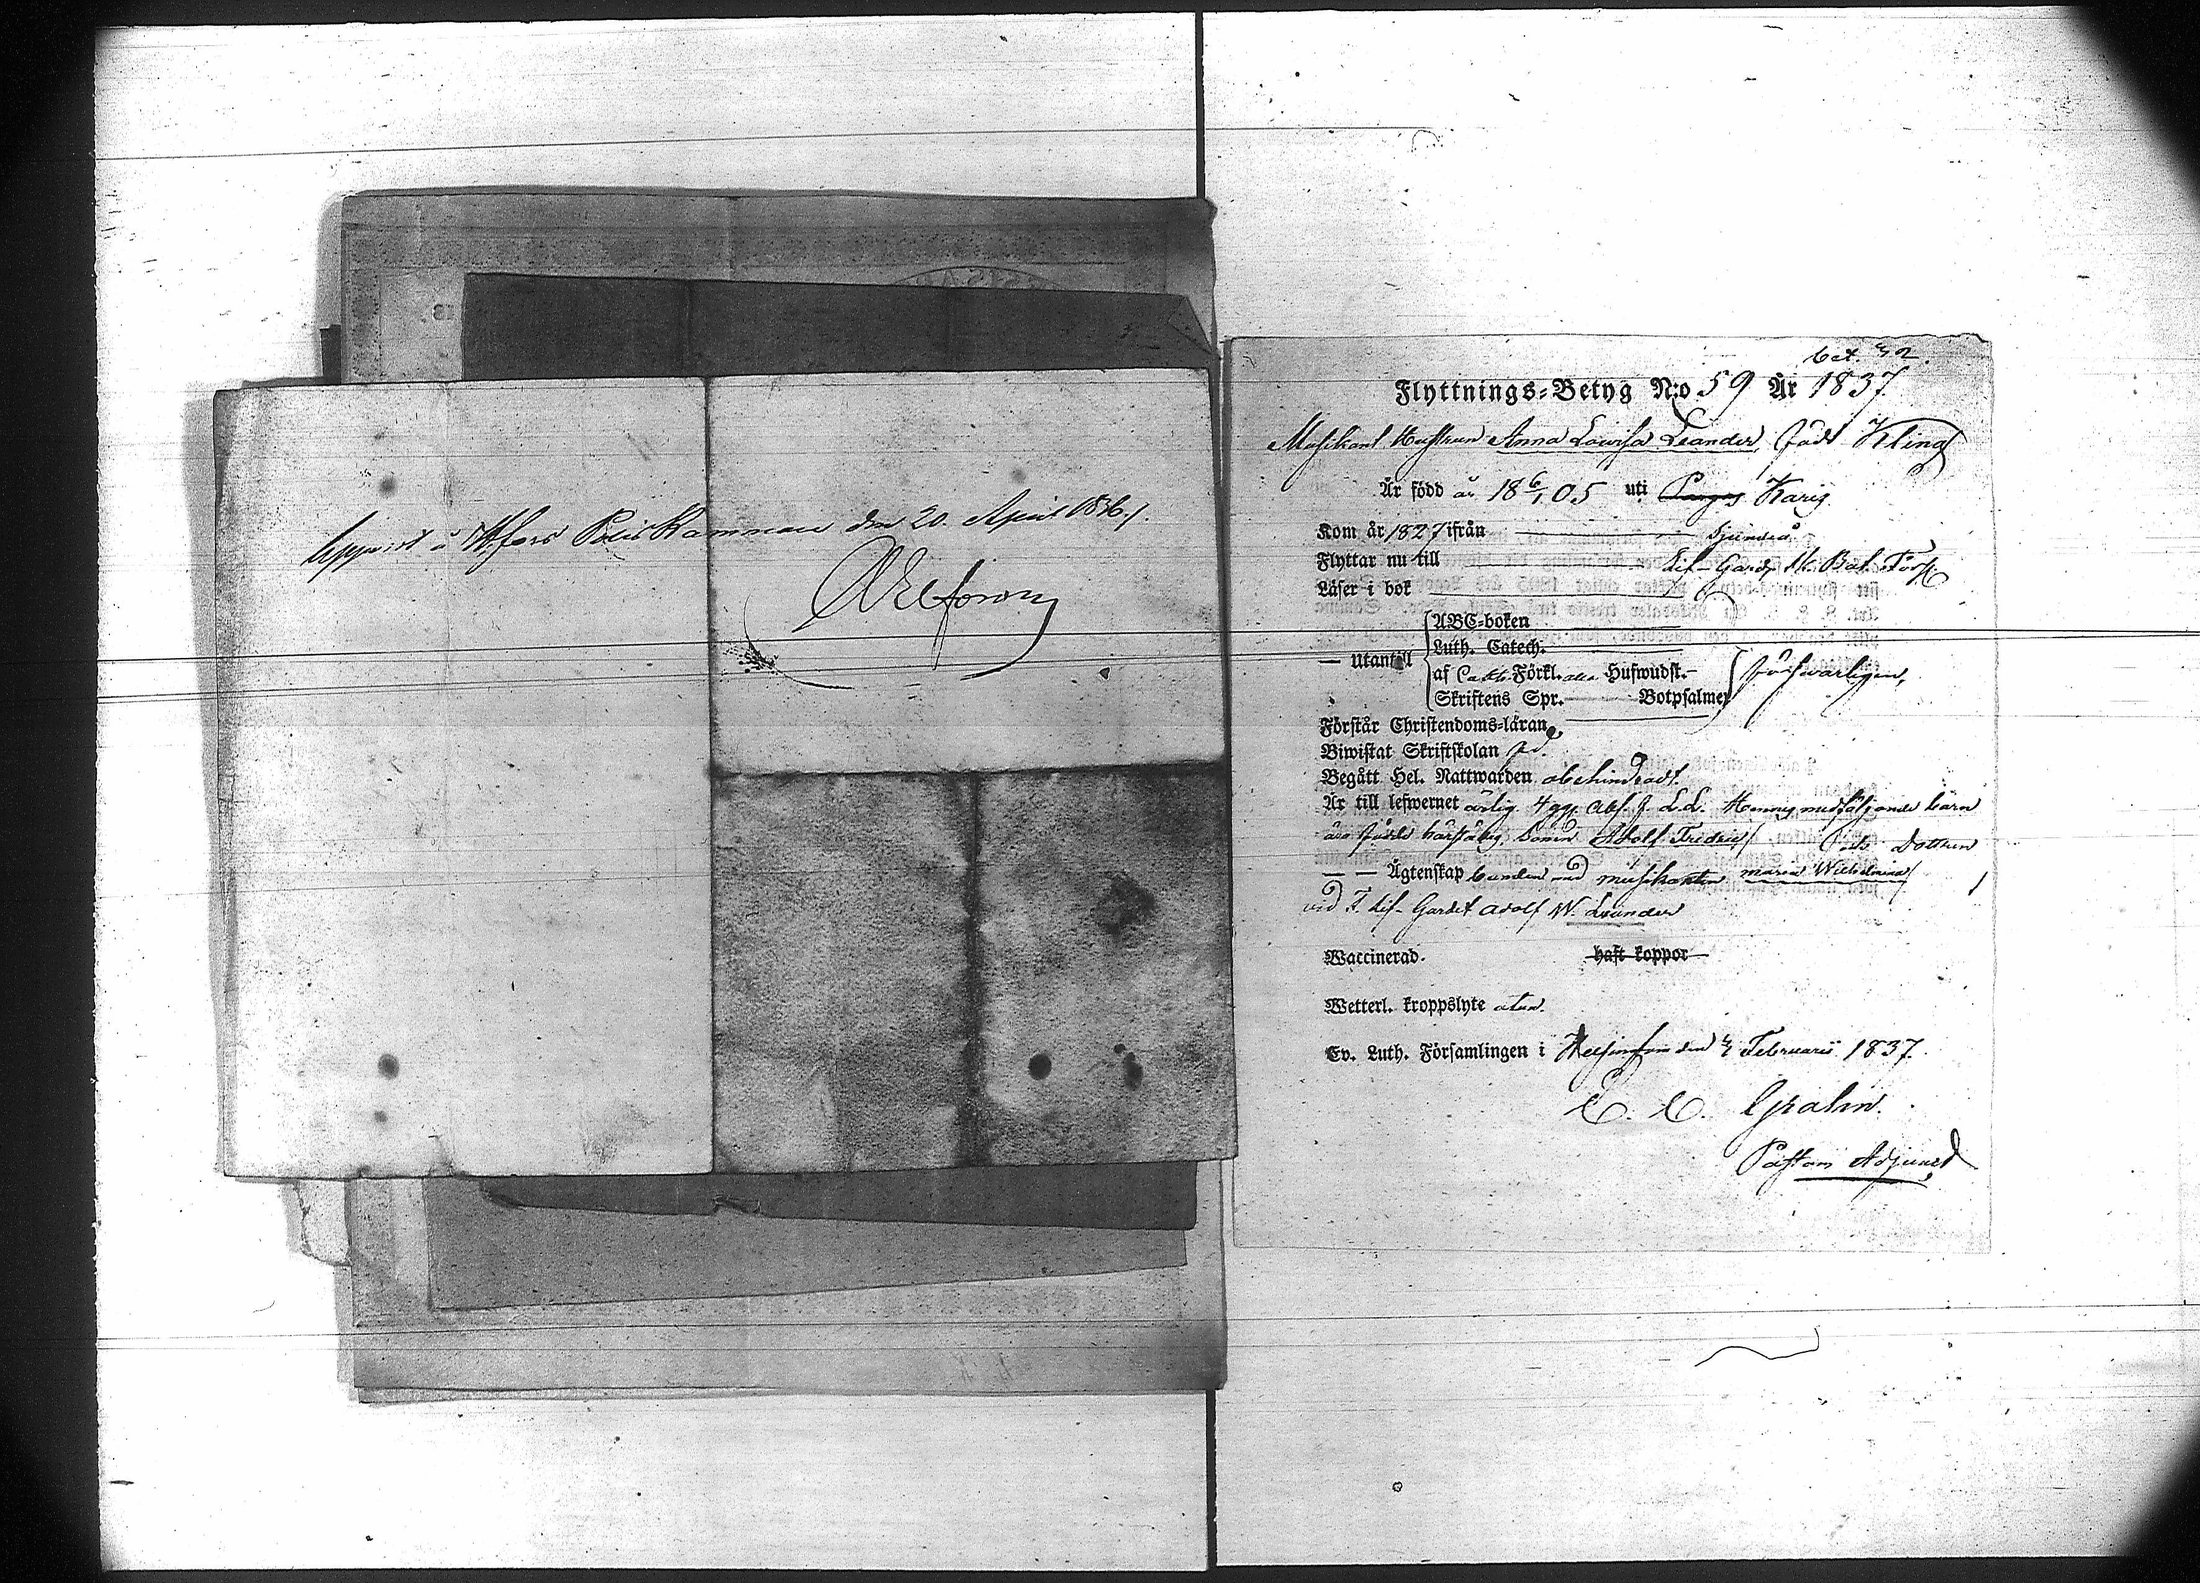 Uppvist i H:fors Polis Kammare den 20. April 1836./.
bet.
Flyttnings-Betyg N:o 59 År 1837.
Musikant Hustrun Anna Lowisa Leander, född Kling
Är född år 18 6/1 05 uti Pargas Karis
Kom år 1827 ifrån Sjundeå.
Flyttar nu till Lif-Gard. Bat. Förs.
Läser i bok
ABC-boken
Luth. Catech.
— Utantill
af Förkl. Hufwudst.
Skriftens Spr. Botpsalmer
försvarligen,
Förstår Christendoms-läran
Biwistat Skriftskolan
Begått Hel. Nattwarden obehindradt.
Är till lefwernet ärlig. medföljande barn
äro födde härstädes, Sonen Adolf Fredric Dottren
— — Ägtenskap bunden med musikanten Maria Wilhelmina
vid F. Lif-Gardet Adolf W. Leander
Waccinerad. haft koppor
Wetterl. kroppslyte utan.
Ev. Luth. Församlingen i Helsingfors den Februarii 1837.
C. C. Grahn.
Pastors Adjunct